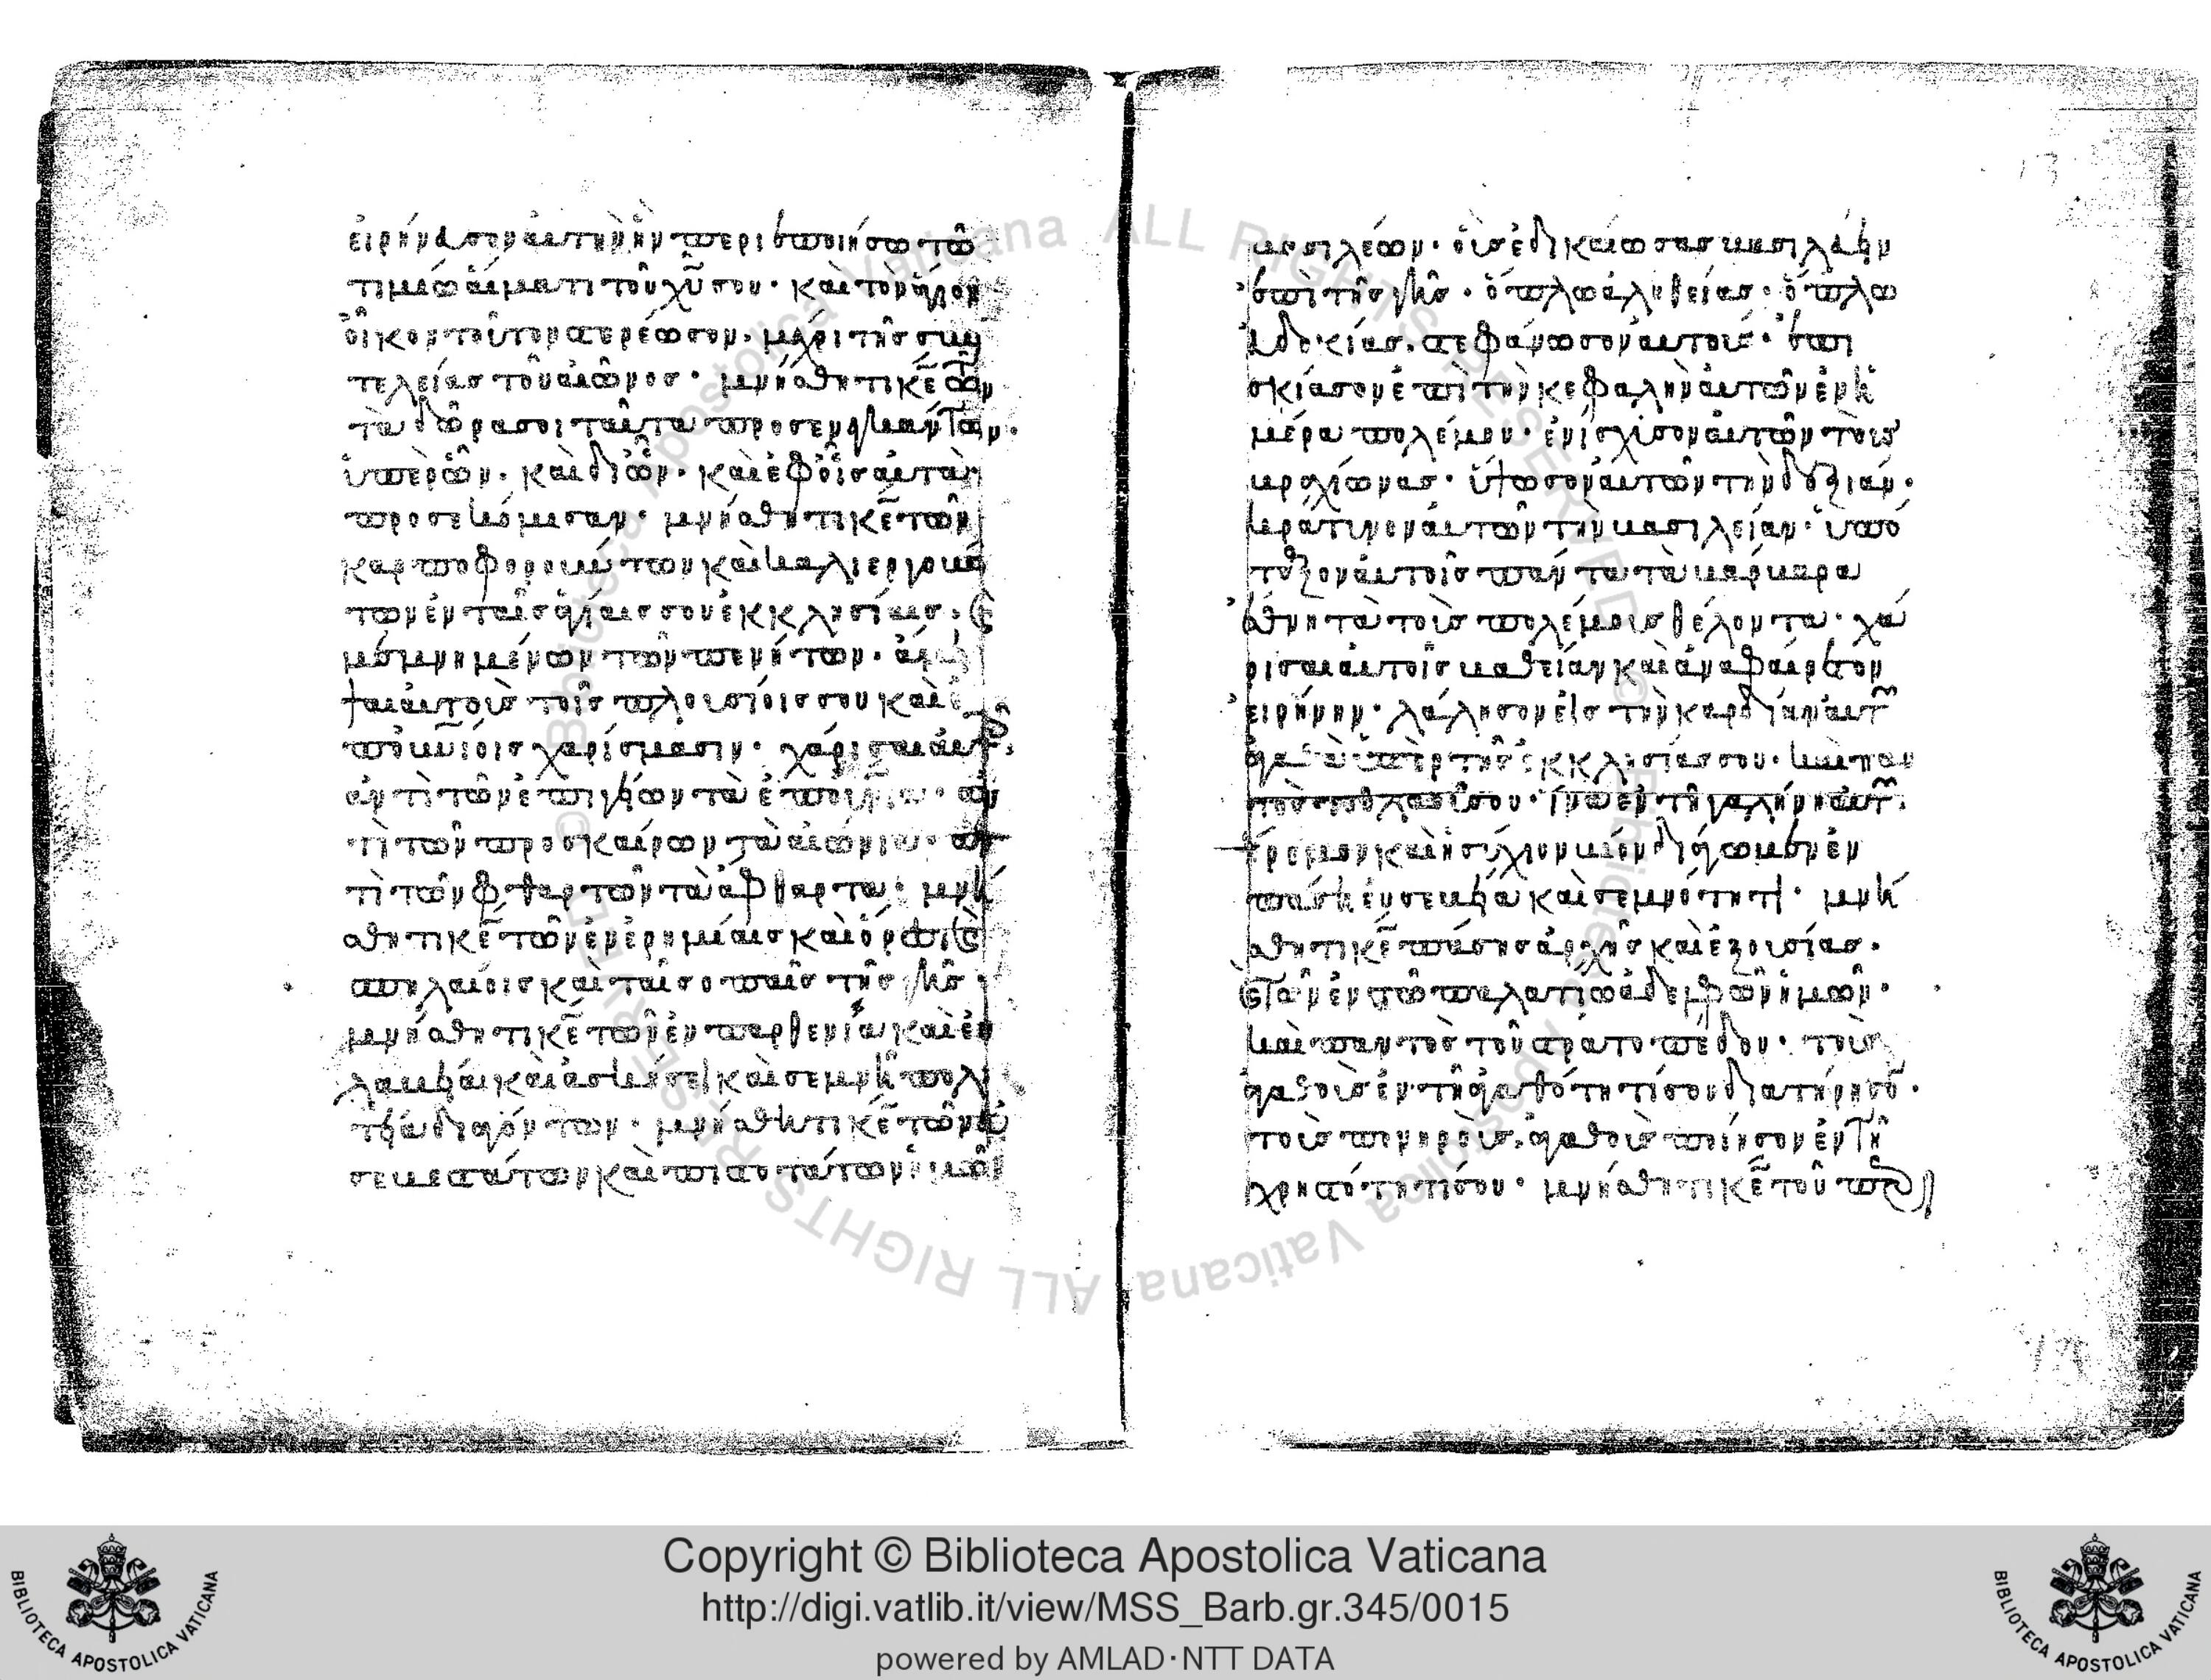 εἰρήνευσον αὐτὴν ἣν περιεποιήσω τῶ
τιμίω αἵματι τοῦ χῦ σου· καὶ τὸν ἅγιον
οἶκον τοῦτον στερέωσον· μέχρι τῆς συν
τελείας τοῦ αἰῶνος· μνήσθητι κε τῶν
τὰ δῶρα σοι ταῦτα προσενεγκάντων·
ὑπὲρ ὧν· καὶ δι ὧν· καὶ ἐφ οἷς αὐτὰ
προσεκόμισαν· μνήσθητι κε τῶν
καρποφορούντων καὶ καλιεργούν
των ἐν ταῖς ἁγίαις σου ἐκκλησίαις· καὶ
μεμνημένων τῶν πενήτων· ἄμει
ψαι αὐτοὺς τοῖς πλουσίοις σου καὶ ἐ
πουνίοις χαρίσμασιν· χάρισαι αὐτοῖς
ἀντὶ τῶν ἐπιγείων τὰ ἐπουράνια· ἀν
τὶ τῶν προσκαίρων τὰ αἰώνια· ἀν
τὶ τῶν φθαρτῶν τὰ ἄφθαρτα· μνή
σθητι κε τῶν ἐν ἐρημίαις καὶ ὄρεσι καὶ
σπηλαίοις καὶ ταῖς ὀπαῖς τῆς γῆς·
μνήσθητι κε τῶν ἐν παρθενία καὶ εὐ
λαβεία καὶ ἀσκήσει καὶ σεμνῆ πολι
τεία διαγόντων· μνήσθητι κε τῶν εὐ
σεβεστάτων καὶ πιστοτάτων ἡμῶν
βασιλέων· οὓς ἐδικαίωσας βασιλεύειν
ἐπὶ τῆς γῆς· ὅπλω ἀληθείας· ὅπλω
εὐδοκίας· στεφάνωσον αὐτούς· ἐπι
σκίασον ἐπὶ τὴν κεφαλὴν αὐτῶν ἐν ἡ
μέρα πολέμου· ἐνίσχισον αὐτῶν τοὺς
βραχίωνας· ὕψωσον αὐτῶν τὴν δεξιάν·
κράτυνον αὐτῶν τὴν βασιλείαν· ὑπό
ταξον αὐτοῖς πάντα τὰ βάρβαρα
ἔθνη τὰ τοὺς πολέμους θέλοντα· χά
ρισαι αὐτοῖς βαθείαν καὶ ἀναφαίρετον
εἰρήνην· λάλησον εἰς τὴν καρδίαν αὐτῶν
ἀγαθὰ ὑπὲρ τῆς ἐκκλησίας σου· καὶ παν
τὸς τοῦ λαοῦ σου· ἵνα ἐν τῆ γαλήνη αὐτῶν·
ἤρεμον καὶ ἡσύχιον βίον διάγωμεν ἐν
πάση εὐσεβεία καὶ σεμνότητι· μνή
σθητι κε πάσης ἀρχῆς καὶ ἐξουσίας·
καὶ τῶν ἐν τῶ παλατίω ἀδελφῶν ἡμῶν·
καὶ παντὸς τοῦ στρατοπέδου· τοὺς
ἀγαθοὺς ἐν τῆ ἀγαθότητί σου διατήρησον·
τοὺς πονηροὺς· ἀγαθοὺς ποίησον ἐν τῆ
χρηστότητί σου· μνήσθητι κε τοῦ περ